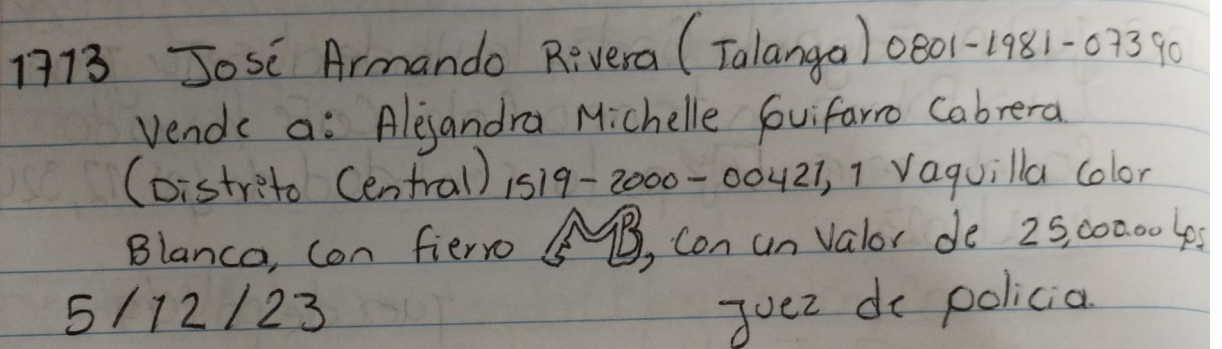 1713 José Armando Rivera (Talanga) 0801-1981-07390
Vende a: Alejandra Michelle Guifarro Cabrera
(Distrito Central) 1519-2000-00421, 1 Vaquilla Color
Blanca, con fierro , con un valor de 25,000.00 Lps
5/12/23 Juez de policia.